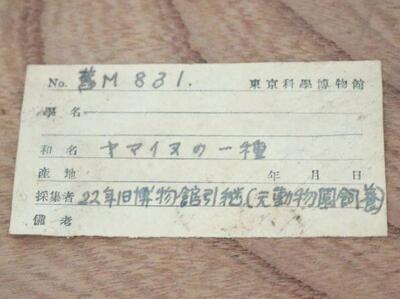 No. 舊M831. 東京科學博物館
學名
和名 ヤマイヌの一種
産地 年 月 日
採集者 22年旧博物館引継(元動物園飼養)
備考